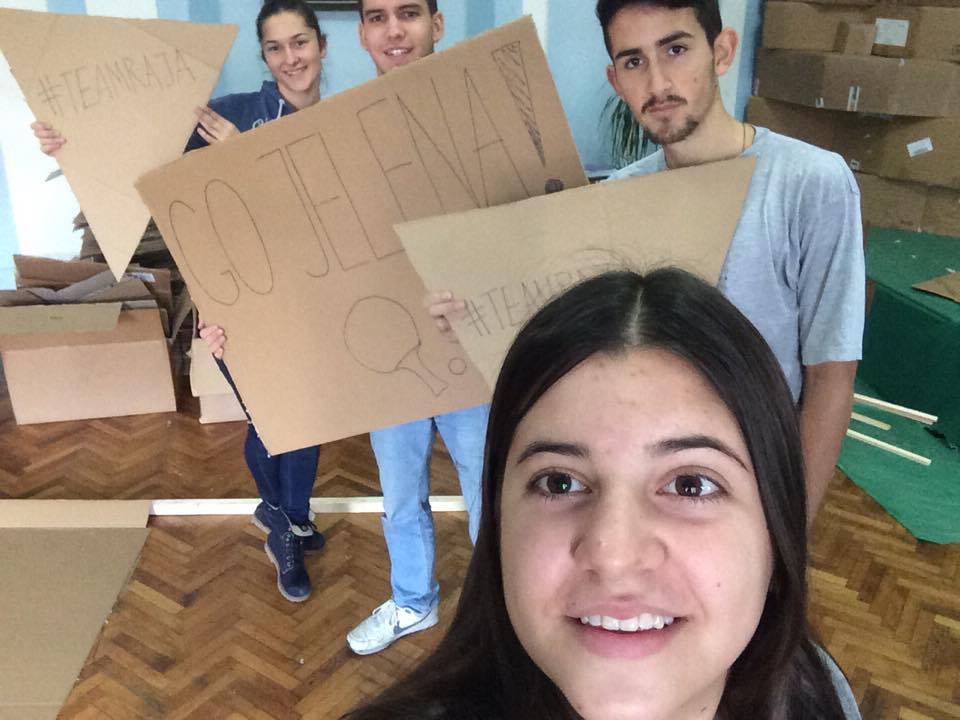 #TEAMRAJA
GO JELENA!
#TEAMRA